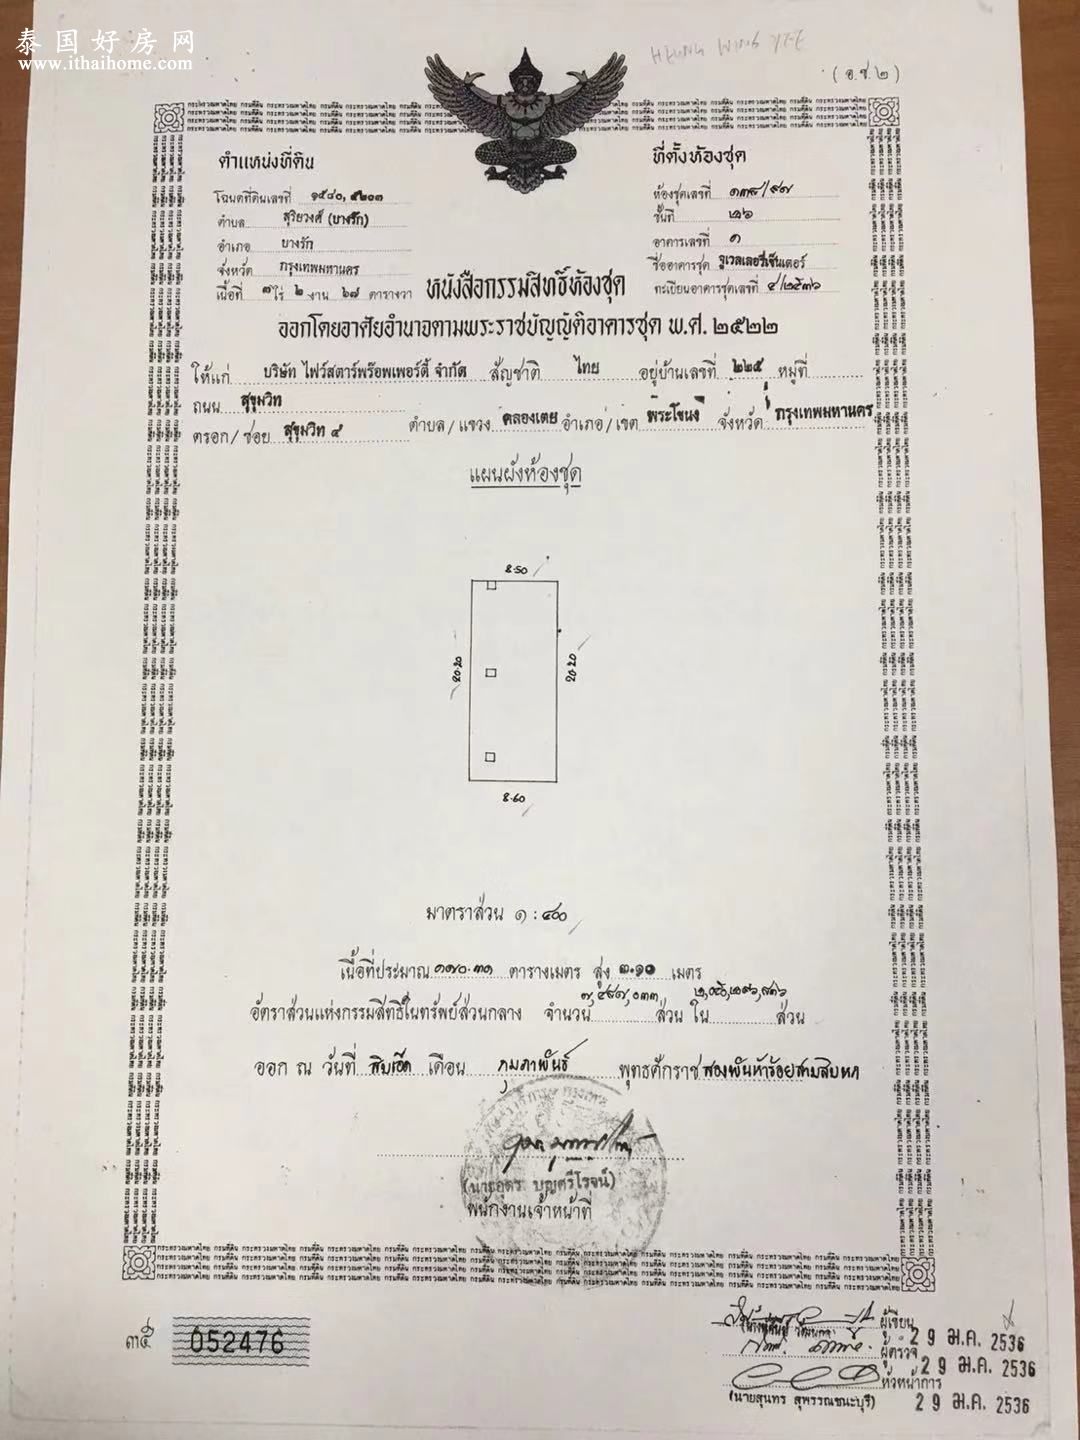 泰国好房网
www.ithaihome.com
HEUNG WING YEE
(อ.ช.๒)
ตำแหน่งที่ดิน
โฉนดที่ดินเลขที่ ๑๕๘๐, ๕๒๐๓
ตำบล สุริยวงศ์ (บางรัก)
อำเภอ บางรัก
จังหวัด กรุงเทพมหานคร
เนื้อที่ ๓ ไร่ ๒ งาน ๖๗ ตารางวา
ที่ตั้งห้องชุด
ห้องชุดเลขที่ ๑๓๘/๙๗
ชั้นที่ ๒๖
อาคารเลขที่ ๑
ชื่ออาคารชุด จูเวลเลอรี่เซ็นเตอร์
ทะเบียนอาคารชุดเลขที่ ๔/๒๕๓๖
หนังสือกรรมสิทธิ์ห้องชุด
ออกโดยอาศัยอำนาจตามพระราชบัญญัติอาคารชุด พ.ศ. ๒๕๒๒
ให้แก่ บริษัท ไฟว์สตาร์พร๊อพเพอร์ตี้ จำกัด สัญชาติ ไทย อยู่บ้านเลขที่ ๒๒๕ หมู่ที่
ถนน สุขุมวิท
ตรอก/ซอย สุขุมวิท ๔ ตำบล/แขวง คลองเตย อำเภอ/เขต พระโขนง จังหวัด กรุงเทพมหานคร
แผนผังห้องชุด
8.50
20.20
20.20
8.60
มาตราส่วน ๑ : ๔๐๐
เนื้อที่ประมาณ ๑๗๐.๓๑ ตารางเมตร สูง ๓.๑๐ เมตร
อัตราส่วนแห่งกรรมสิทธิ์ในทรัพย์ส่วนกลาง จำนวน ส่วน ใน ส่วน
ออก ณ วันที่ สิบเอ็ด เดือน กุมภาพันธ์ พุทธศักราช สองพันห้าร้อยสามสิบหก
(นายอุดร บุญศรีโรจน์)
พนักงานเจ้าหน้าที่
๓๕ 052476
ผู้เขียน 29 ม.ค. 2536
ผู้ตรวจ 29 ม.ค. 2536
หัวหน้าการ
(นายสุนทร สุพรรณชนะบุรี) 29 ม.ค. 2536